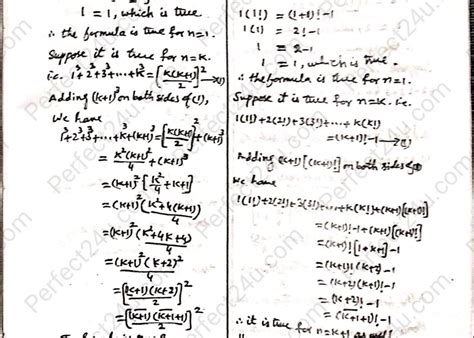 1 = 1, which is true
∴ the formula is true for n=1.
Suppose it is true for n=K.
i.e. 1³+2³+3³+...+K³=[K(K+1)/2]² →(1)
Adding (K+1)³ on both sides of (1),
We have
1³+2³+3³+...+K³+(K+1)³=[K(K+1)/2]²+(K+1)³
=K²(K+1)²/4+(K+1)³
=(K+1)²[K²/4+K+1]
=(K+1)²(K²+4(K+1)/4)
=(K+1)²(K²+4K+4/4)
=(K+1)²(K+2)²/4
=[(K+1)(K+2)/2]²
=[(K+1)(K+1+1)/2]²
1(1!) = (1+1)!-1
1 = 2!-1
1 = 2-1
1 = 1, which is true.
∴ the formula is true for n=1.
Suppose it is true for n=K. i.e.
1(1!)+2(2!)+3(3!)+...+K(K!)
=(K+1)!-1 →(1)
Adding (K+1)[(K+1)!] on both sides of (1)
We have
1(1!)+2(2!)+3(3!)+...+K(K!)+(K+1)[(K+1)!]
=(K+1)!-1+(K+1)[(K+1)!]
=(K+1)![1+K+1]-1
=(K+1)!(K+2)-1
=(K+2)(K+1)!-1
=(K+2)!-1
=(K+1+1)!-1
∴ it is true for n=K+1
Perfect24u.com